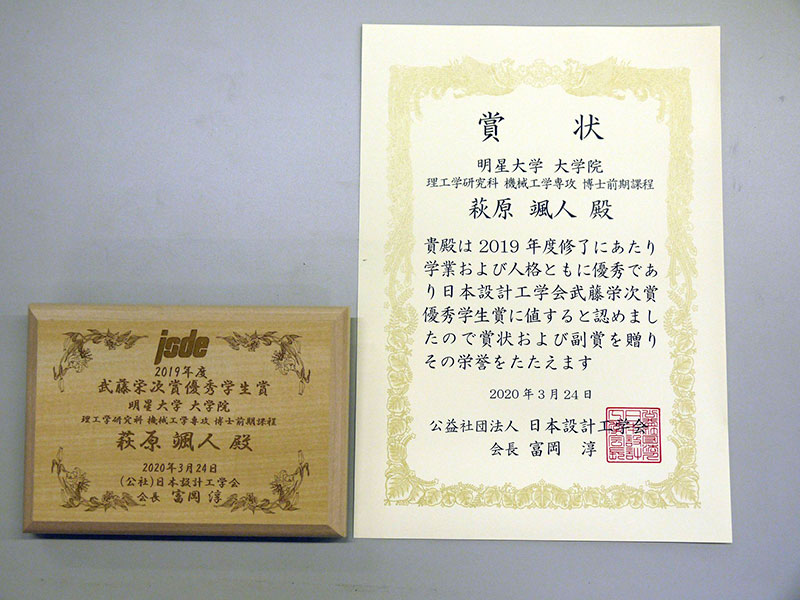 jsde
2019年度
武藤栄次賞優秀学生賞
明星大学 大学院
理工学研究科 機械工学専攻 博士前期課程
萩原 颯人 殿
2020年3月24日
(公社)日本設計工学会
会長 富岡 淳
賞 状
明星大学 大学院
理工学研究科 機械工学専攻 博士前期課程
萩原 颯人 殿
貴殿は2019年度修了にあたり
学業および人格ともに優秀であ
り日本設計工学会武藤栄次賞
優秀学生賞に値すると認めまし
たので賞状および副賞を贈り
その栄誉をたたえます
2020年3月24日
公益社団法人 日本設計工学会
会長 富岡 淳